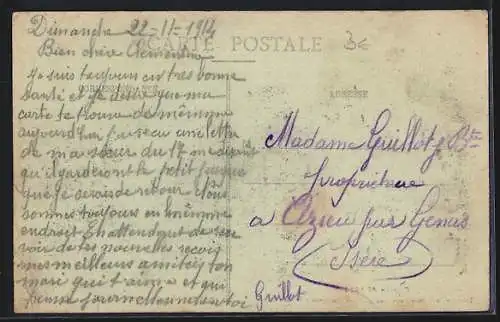 Dimanche 22-11-1914
Bien chère Clémentine
CARTE POSTALE
3€
CORRESPONDANCE
ADRESSE
Je suis toujours en très bonne
Santé et je désire que ma
carte te trouve de même
aujourd'hui j'ai reçu une lettre
de ma sœur du 17
qu'il garderont le petit jusque
que je serais de retour Nous
sommes toujours en même
endroit En attendant de rece
voir de tes nouvelles reçois
mes meilleurs amitiés ton
mari qui t'aime et qui
pense journellement à toi
Guillot
Madame Guillot J. Bte
propriétaire
à Azieu par Genas
Isère